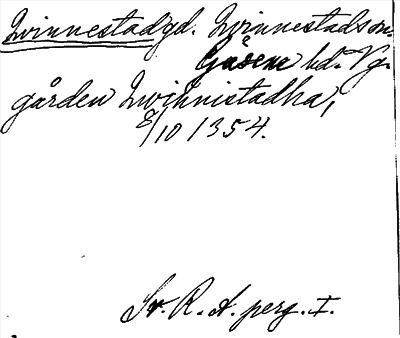 Qvinnestadgd. Qvinnestads sn.
Gäsene hd. Vg.
gården Qwinnistadha,
8/10 1354.
Sv. R. A. perg. I.